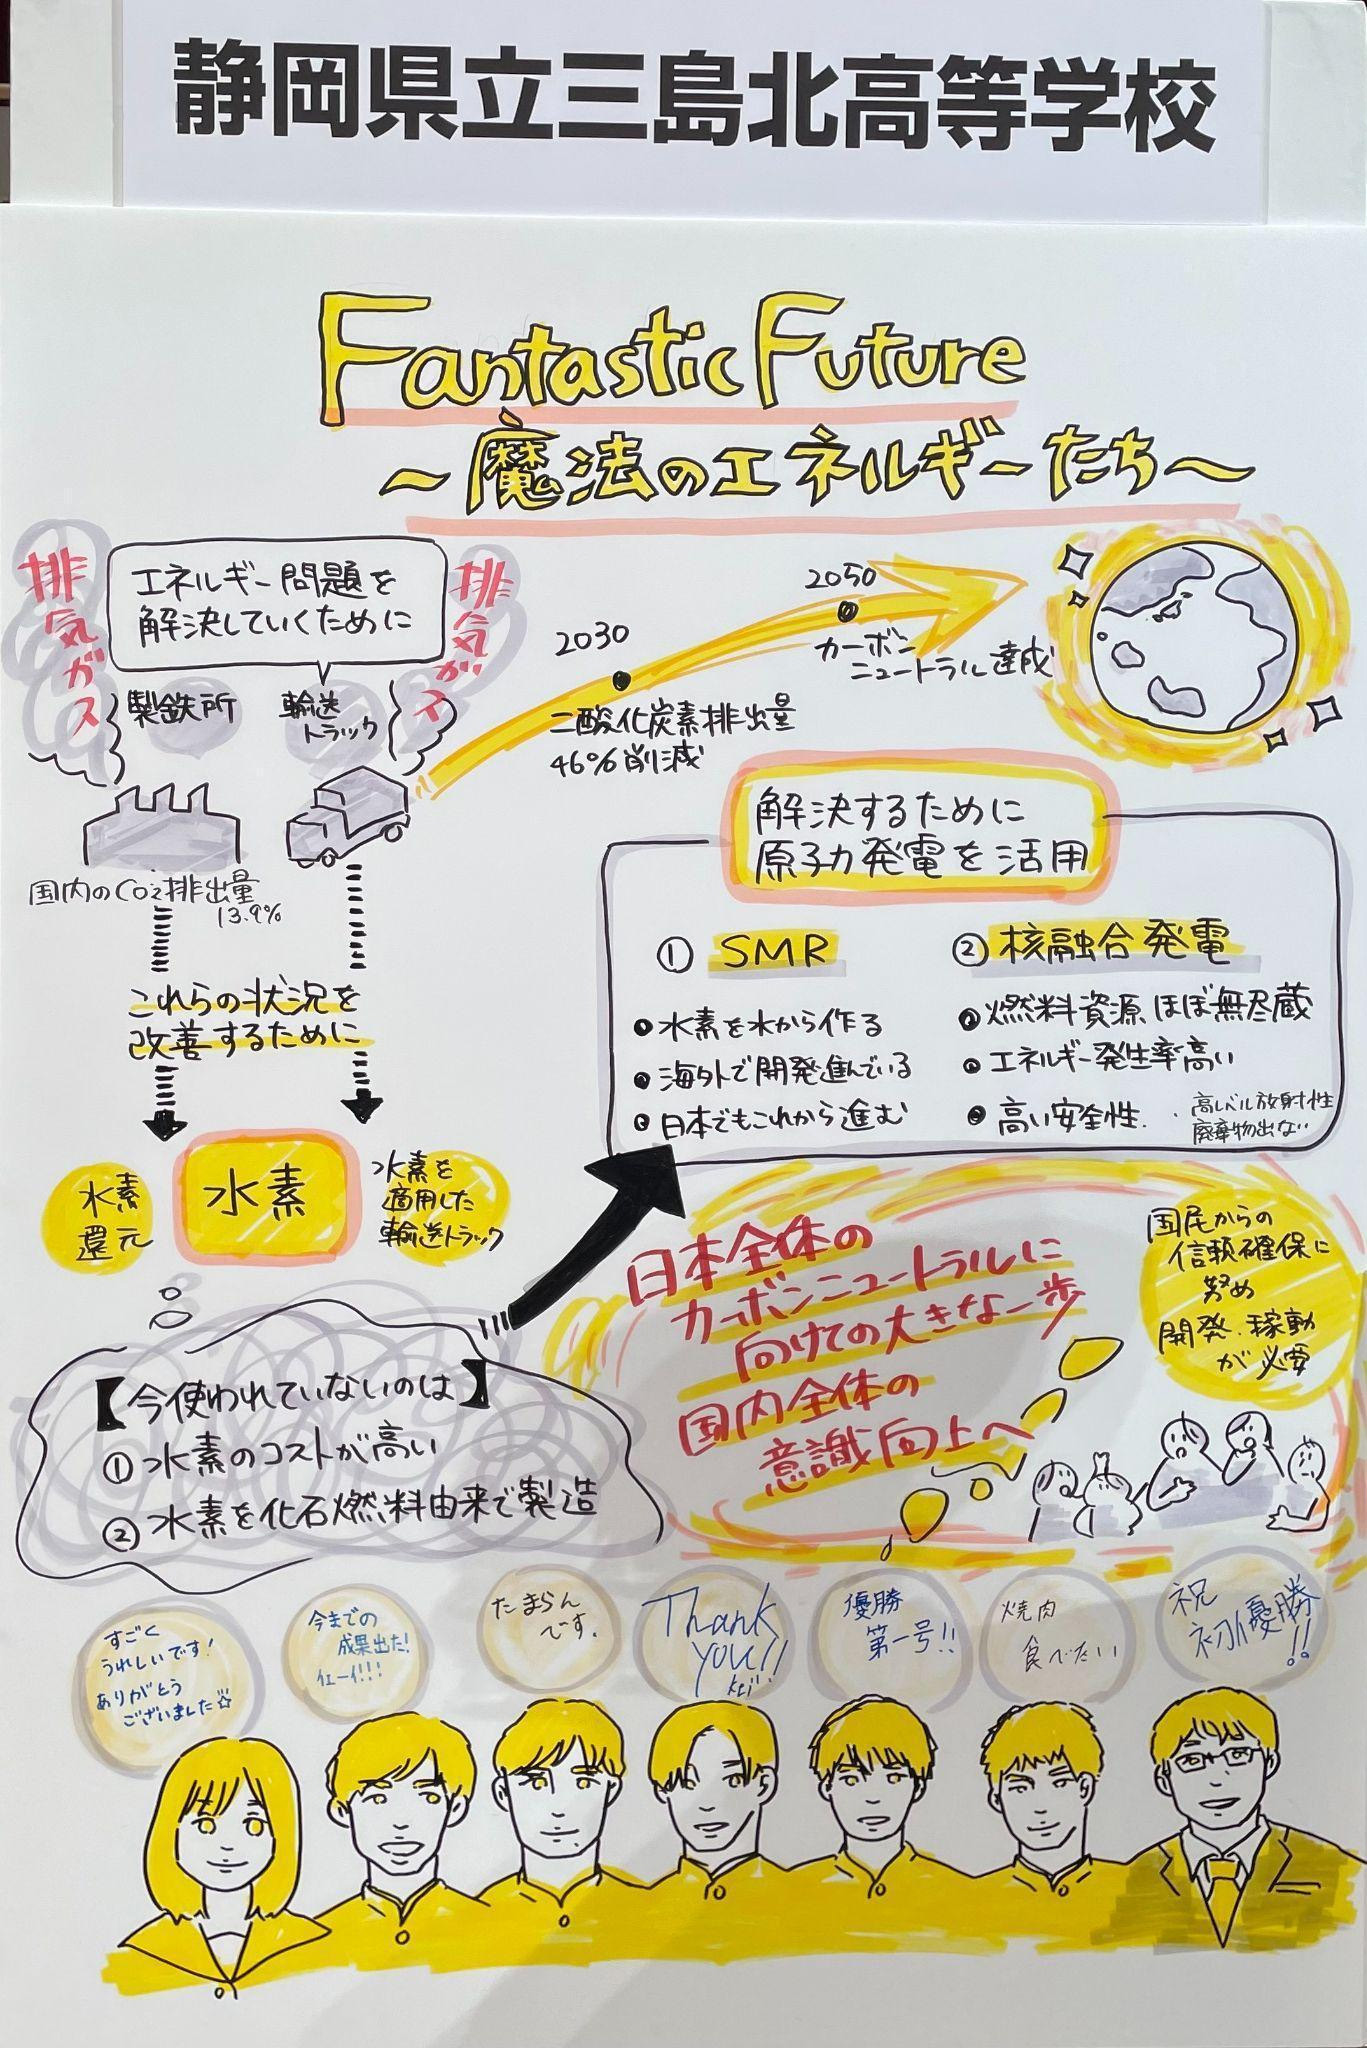 静岡県立三島北高等学校
Fantastic Future
～魔法のエネルギーたち～
排気ガス
エネルギー問題を
解決していくために
排気ガス
製鉄所
輸送
トラック
国内のCO2排出量
13.9%
2030
二酸化炭素排出量
46%削減
2050
カーボン
ニュートラル達成
これらの状況を
改善するために
水素
還元
水素
水素を
適用した
輸送トラック
【今使われていないのは】
① 水素のコストが高い
② 水素を化石燃料由来で製造
解決するために
原子力発電を活用
① SMR
● 水素を水から作る
● 海外で開発進んでいる
● 日本でもこれから進む
② 核融合発電
● 燃料資源ほぼ無尽蔵
● エネルギー発生率高い
● 高い安全性
・高レベル放射性
廃棄物出ない
日本全体の
カーボンニュートラルに
向けての大きな一歩
国内全体の
意識向上へ
国民からの
信頼確保に
努め
開発・稼動
が必要
すごく
うれしいです!
ありがとう
ございました☆
今までの
成果出た!
イェーイ!!!
たまらん
です。
Thank
you!!
kei
優勝
第一号!!
焼肉
食べたい
祝
初優勝
!!